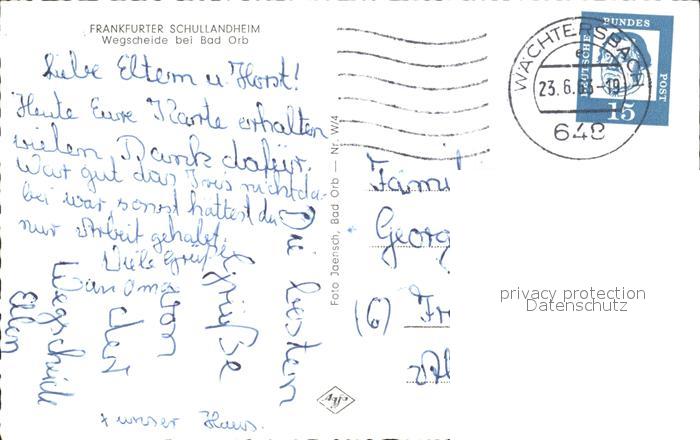 FRANKFURTER SCHULLANDHEIM
Wegscheide bei Bad Orb
Liebe Eltern u. Horst!
Heute Eure Karte erhalten
vielen Dank dafür.
War gut das Iris nicht da-
bei war, sonst hättest du
nur Arbeit gehabt.
Viele Grüße
an Oma
Die besten
Grüße
von
der
Wegscheide
Ellen
x unser Haus.
Foto Jaensch, Bad Orb — Nr. W/4
Agfa
WÄCHTERSBACH
23.6.63-19
648
DEUTSCHE BUNDESPOST
15
Fami
Georg
(6) Fr
privacy protection
Datenschutz